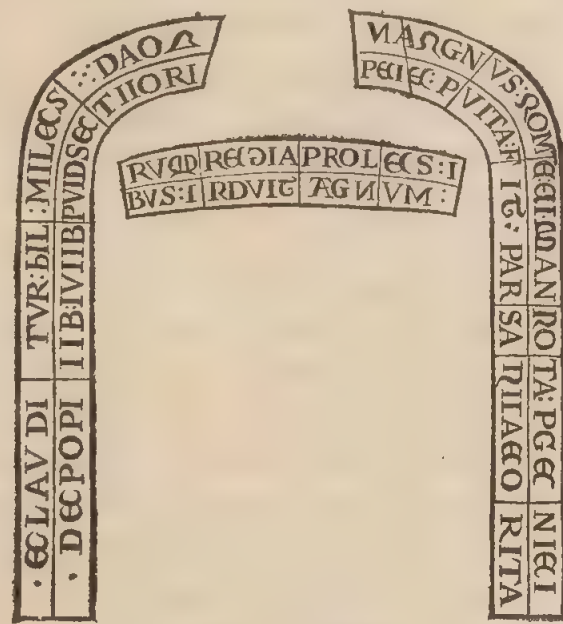 · CLAV DI TVR: hIL : MILES : DAO
· DEPOPI IIB:IVIIB PVIDSE TIIORI
RVM REGIA PROLES : I
BVS : I RDVIT AGNVM :
MANGNVS : NOMEEI MAN NOTA : PGE NIEI
PEIE : P VITA : FIT : PAR SA NIIAEO RITA